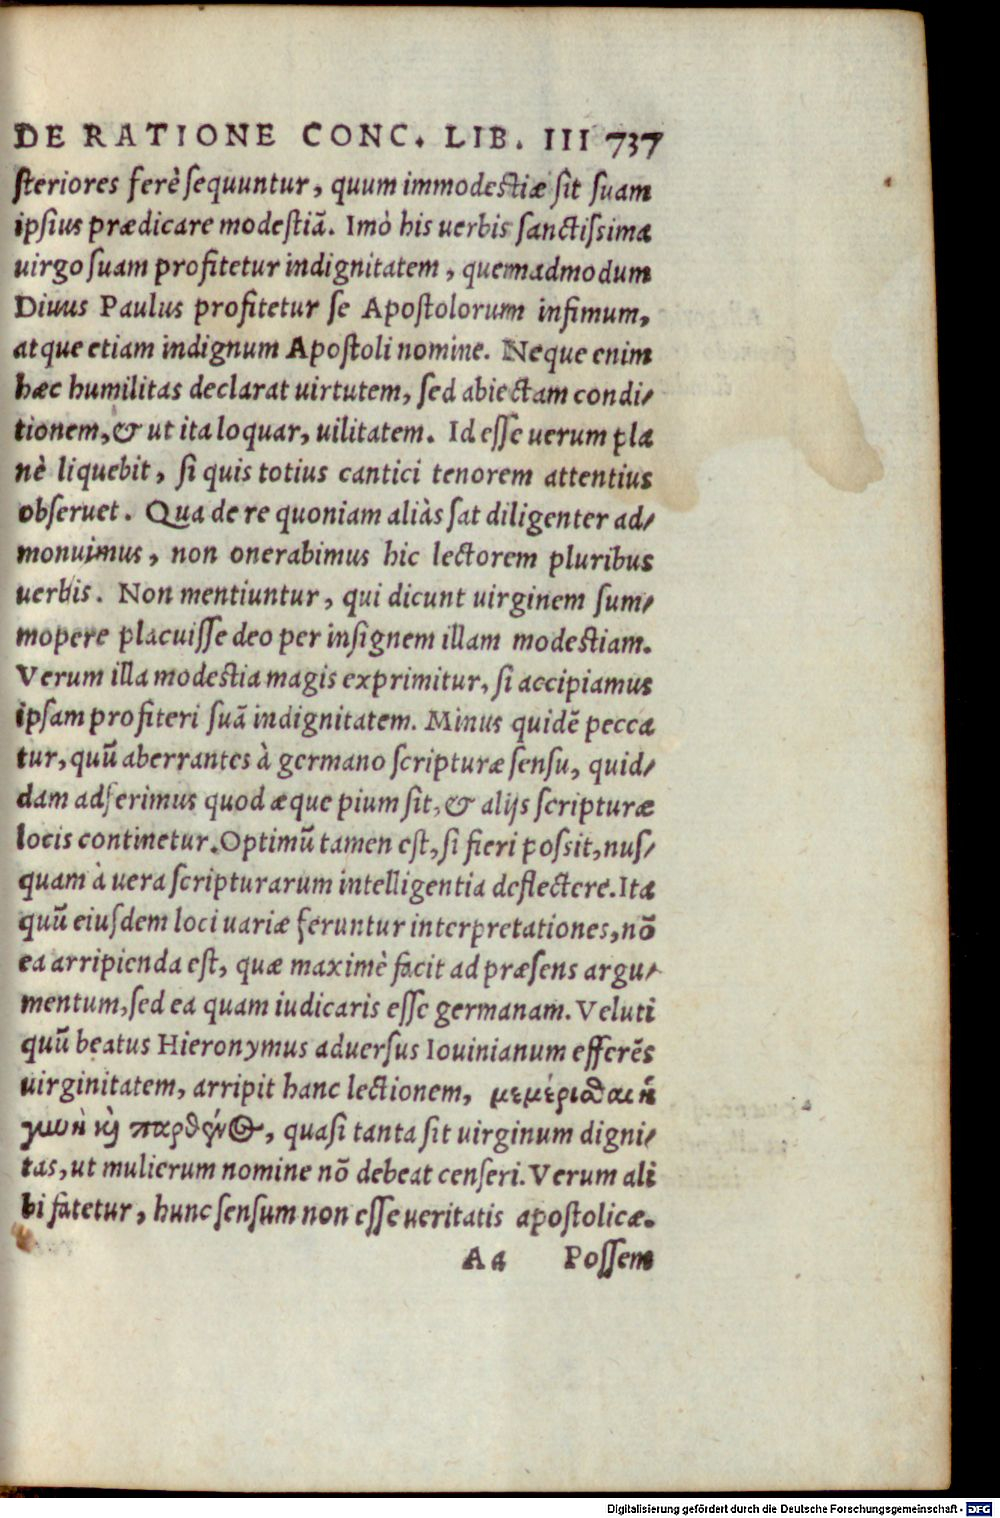 DE RATIONE CONC. LIB. III 737
steriores ferè sequuntur, quum immodestiæ sit suam
ipsius prædicare modestiã. Imò his uerbis sanctissima
uirgo suam profitetur indignitatem, quemadmodum
Diuus Paulus profitetur se Apostolorum infimum,
atque etiam indignum Apostoli nomine. Neque enim
hæc humilitas declarat uirtutem, sed abiectam condi-
tionem, & ut ita loquar, uilitatem. Id esse uerum pla
nè liquebit, si quis totius cantici tenorem attentius
obseruet. Qua de re quoniam aliàs sat diligenter ad-
monuimus, non onerabimus hic lectorem pluribus
uerbis. Non mentiuntur, qui dicunt uirginem sum-
mopere placuisse deo per insignem illam modestiam.
Verum illa modestia magis exprimitur, si accipiamus
ipsam profiteri suã indignitatem. Minus quidẽ pecca
tur, quũ aberrantes à germano scripturæ sensu, quid-
dam adserimus quod æque pium sit, & alijs scripturæ
locis continetur. Optimũ tamen est, si fieri possit, nus-
quam à uera scripturarum intelligentia deflectere. Ita
quũ eiusdem loci uariæ feruntur interpretationes, nõ
ea arripienda est, quæ maximè facit ad præsens argu-
mentum, sed ea quam iudicaris esse germanam. Veluti
quũ beatus Hieronymus aduersus Iouinianum efferẽs
uirginitatem, arripit hanc lectionem, μεμέρισαι ἡ
γυνὴ καὶ παρθένος, quasi tanta sit uirginum digni-
tas, ut mulierum nomine nõ debeat censeri. Verum ali
bi fatetur, hunc sensum non esse ueritatis apostolicæ.
Aa Possem
Digitalisierung gefördert durch die Deutsche Forschungsgemeinschaft - DFG